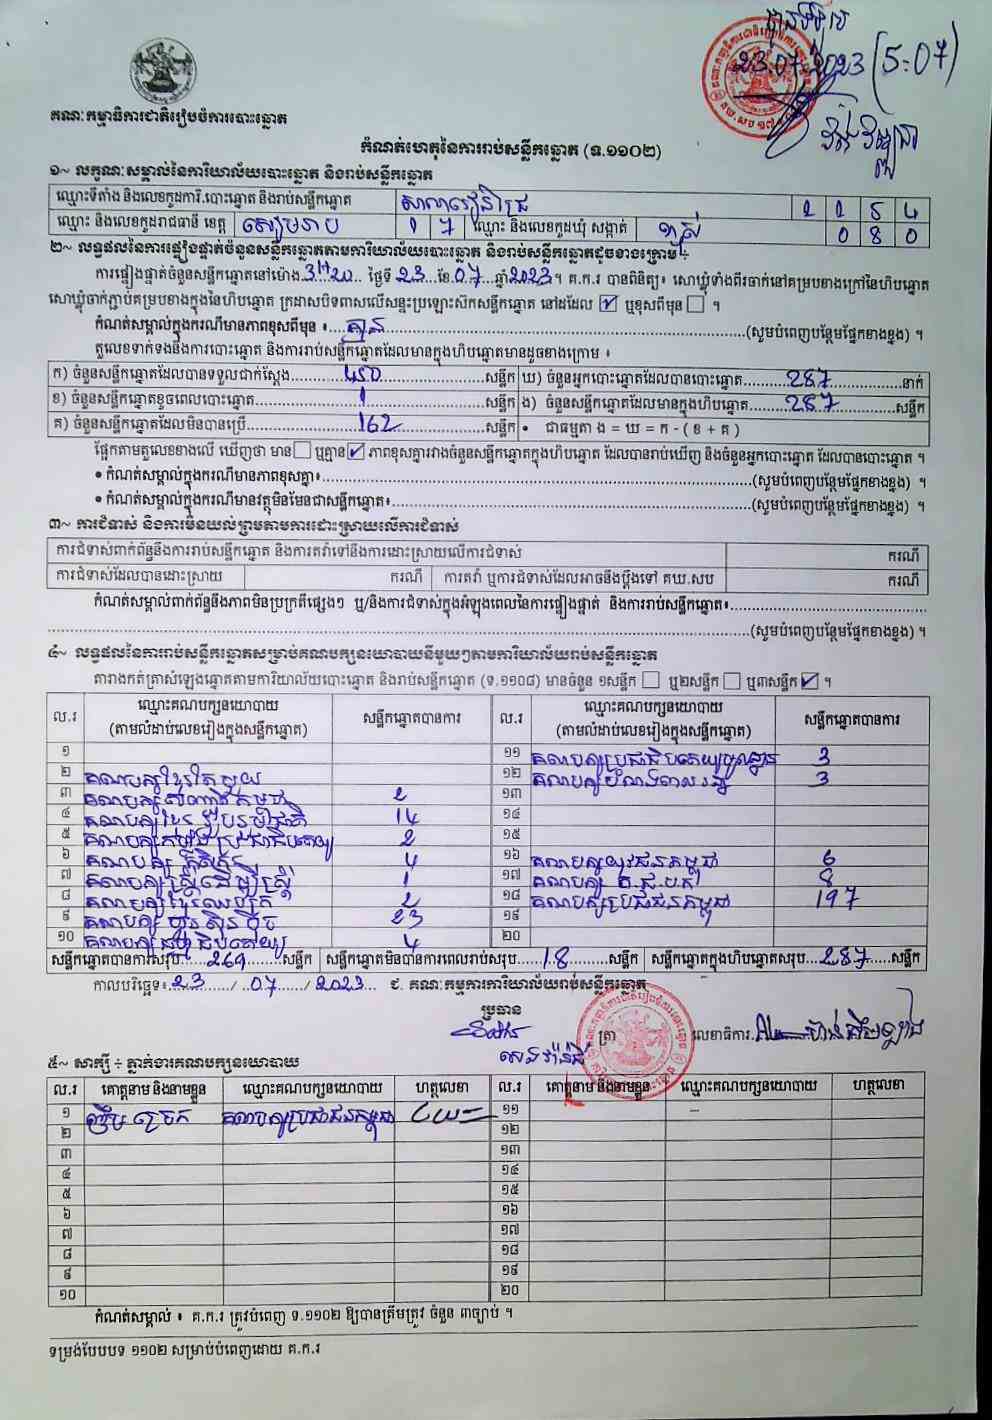 23.07.2023 (5:07)
គណៈកម្មាធិការជាតិរៀបចំការបោះឆ្នោត
កំណត់ហេតុនៃការរាប់សន្លឹកឆ្នោត (ទ.១១០២)
១~ លក្ខណៈសម្គាល់នៃការិយាល័យបោះឆ្នោត និងរាប់សន្លឹកឆ្នោត
ឈ្មោះទីតាំង និងលេខកូដការិ.បោះឆ្នោត និងរាប់សន្លឹកឆ្នោត
ឈ្មោះ និងលេខកូដរាជធានី ខេត្ត សៀមរាប 1 7 ឈ្មោះ និងលេខកូដឃុំ សង្កាត់ 0 8 0
២~ លទ្ធផលនៃការផ្ទៀងផ្ទាត់ចំនួនសន្លឹកឆ្នោតតាមការិយាល័យបោះឆ្នោត និងរាប់សន្លឹកឆ្នោតដូចខាងក្រោម ÷
ការផ្ទៀងផ្ទាត់ចំនួនសន្លឹកឆ្នោតនៅម៉ោង 3H20 ថ្ងៃទី 23 ខែ 07 ឆ្នាំ 2023 ។ គ.ក.រ បានពិនិត្យ៖ សោឃ្លុំទាំងពីរចាក់នៅគម្របខាងក្រៅនៃហិបឆ្នោត
សោឃ្លុំចាក់ភ្ជាប់គម្របខាងក្នុងនៃហិបឆ្នោត ក្រដាសបិទពាសលើសន្ទះប្រឡោះសិកសន្លឹកឆ្នោត នៅដដែល ☑ ឬខុសពីមុន ☐ ។
កំណត់សម្គាល់ក្នុងករណីមានភាពខុសពីមុន ៖ គ្មាន (សូមបំពេញបន្ថែមផ្នែកខាងខ្នង) ។
តួលេខទាក់ទងនឹងការបោះឆ្នោត និងការរាប់សន្លឹកឆ្នោតដែលមានក្នុងហិបឆ្នោតមានដូចខាងក្រោម ៖
ក) ចំនួនសន្លឹកឆ្នោតដែលបានទទួលជាក់ស្តែង 450 សន្លឹក ឃ) ចំនួនអ្នកបោះឆ្នោតដែលបានបោះឆ្នោត 287 នាក់
ខ) ចំនួនសន្លឹកឆ្នោតខូចពេលបោះឆ្នោត 1 សន្លឹក ង) ចំនួនសន្លឹកឆ្នោតដែលមានក្នុងហិបឆ្នោត 287 សន្លឹក
គ) ចំនួនសន្លឹកឆ្នោតដែលមិនបានប្រើ 162 សន្លឹក • ជាធម្មតា ង = ឃ = ក - ( ខ + គ )
ផ្អែកតាមតួលេខខាងលើ ឃើញថា មាន ☐ ឬគ្មាន ☑ ភាពខុសគ្នារវាងចំនួនសន្លឹកឆ្នោតក្នុងហិបឆ្នោត ដែលបានរាប់ឃើញ និងចំនួនអ្នកបោះឆ្នោត ដែលបានបោះឆ្នោត ។
• កំណត់សម្គាល់ក្នុងករណីមានភាពខុសគ្នា៖ (សូមបំពេញបន្ថែមផ្នែកខាងខ្នង) ។
• កំណត់សម្គាល់ក្នុងករណីមានវត្ថុមិនមែនជាសន្លឹកឆ្នោត៖ (សូមបំពេញបន្ថែមផ្នែកខាងខ្នង) ។
៣~ ការជំទាស់ និងការមិនយល់ព្រមតាមការដោះស្រាយលើការជំទាស់
ការជំទាស់ពាក់ព័ន្ធនឹងការរាប់សន្លឹកឆ្នោត និងការតវ៉ាទៅនឹងការដោះស្រាយលើការជំទាស់ ករណី
ការជំទាស់ដែលបានដោះស្រាយ ករណី ការតវ៉ា ឬការជំទាស់ដែលអាចនឹងប្តឹងទៅ គឃ.សប ករណី
កំណត់សម្គាល់ពាក់ព័ន្ធនឹងភាពមិនប្រក្រតីផ្សេងៗ ឬ/និងការជំទាស់ក្នុងអំឡុងពេលនៃការផ្ទៀងផ្ទាត់ និងការរាប់សន្លឹកឆ្នោត៖
(សូមបំពេញបន្ថែមផ្នែកខាងខ្នង) ។
៤~ លទ្ធផលនៃការរាប់សន្លឹកឆ្នោតសម្រាប់គណបក្សនយោបាយនីមួយៗតាមការិយាល័យរាប់សន្លឹកឆ្នោត
តារាងកត់ត្រាសំឡេងឆ្នោតតាមការិយាល័យបោះឆ្នោត និងរាប់សន្លឹកឆ្នោត (ទ.១១០៨) មានចំនួន ១សន្លឹក ☐ ឬ២សន្លឹក ☐ ឬ៣សន្លឹក ☑ ។
ល.រ ឈ្មោះគណបក្សនយោបាយ (តាមលំដាប់លេខរៀងក្នុងសន្លឹកឆ្នោត) សន្លឹកឆ្នោតបានការ ល.រ ឈ្មោះគណបក្សនយោបាយ (តាមលំដាប់លេខរៀងក្នុងសន្លឹកឆ្នោត) សន្លឹកឆ្នោតបានការ
១ ១១ 3
២ គណបក្សខ្មែរតែមួយ ១២ 3
៣ 2 ១៣
៤ 14 ១៤
៥ 2 ១៥
៦ 4 ១៦ គណបក្សយុវជនកម្ពុជា 6
៧ គណបក្សស្ត្រីដើម្បីស្ត្រី 1 ១៧ 8
៨ 2 ១៨ គណបក្សប្រជាជនកម្ពុជា 197
៩ គណបក្ស ហ្វ៊ុនស៊ិនប៉ិច 23 ១៩
១០ 4 ២០
សន្លឹកឆ្នោតបានការសរុប 269 សន្លឹក សន្លឹកឆ្នោតមិនបានការពេលរាប់សរុប 18 សន្លឹក សន្លឹកឆ្នោតក្នុងហិបឆ្នោតសរុប 287 សន្លឹក
កាលបរិច្ឆេទ៖ 23 / 07 / 2023 ជ. គណៈកម្មការការិយាល័យរាប់សន្លឹកឆ្នោត
ប្រធាន
ត្រា លេខាធិការ
៥~ សាក្សី ÷ ភ្នាក់ងារគណបក្សនយោបាយ
ល.រ គោត្តនាម និងនាមខ្លួន ឈ្មោះគណបក្សនយោបាយ ហត្ថលេខា ល.រ គោត្តនាម និងនាមខ្លួន ឈ្មោះគណបក្សនយោបាយ ហត្ថលេខា
១ គណបក្សប្រជាជនកម្ពុជា ១១
២ ១២
៣ ១៣
៤ ១៤
៥ ១៥
៦ ១៦
៧ ១៧
៨ ១៨
៩ ១៩
១០ ២០
កំណត់សម្គាល់ ៖ គ.ក.រ ត្រូវបំពេញ ទ.១១០២ ឱ្យបានត្រឹមត្រូវ ចំនួន ៣ច្បាប់ ។
ទម្រង់បែបបទ ១១០២ សម្រាប់បំពេញដោយ គ.ក.រ